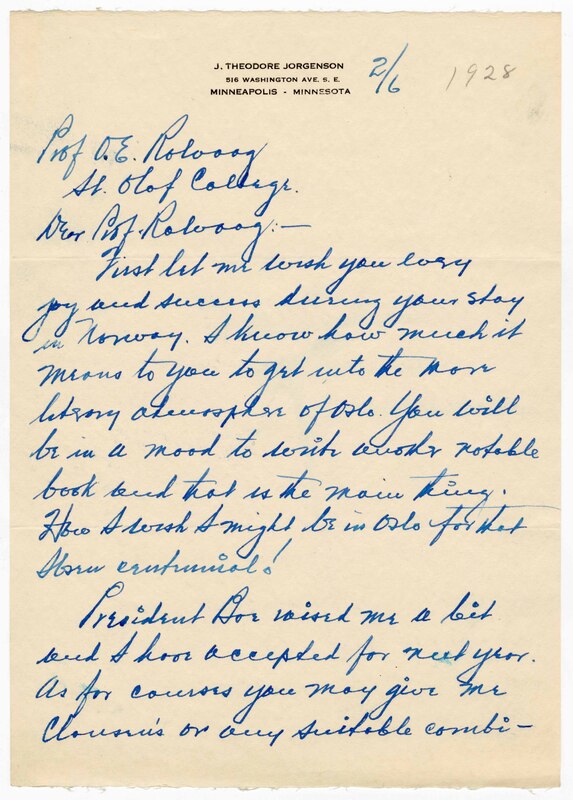 J. THEODORE JORGENSON
516 WASHINGTON AVE. S. E.
MINNEAPOLIS - MINNESOTA
2/6
1928
Prof O. E. Rolvaag
St. Olaf College.
Dear Prof. Rolvaag:—
First let me wish you every
joy and success during your stay
in Norway. I know how much it
means to you to get into the more
literary atmosphere of Oslo. You will
be in a mood to write another notable
book and that is the main thing.
How I wish I might be in Oslo for that
Ibsen centennial!
President Boe raised me a bit
and I have accepted for next year.
As for courses you may give me
Clausen's or any suitable combi-